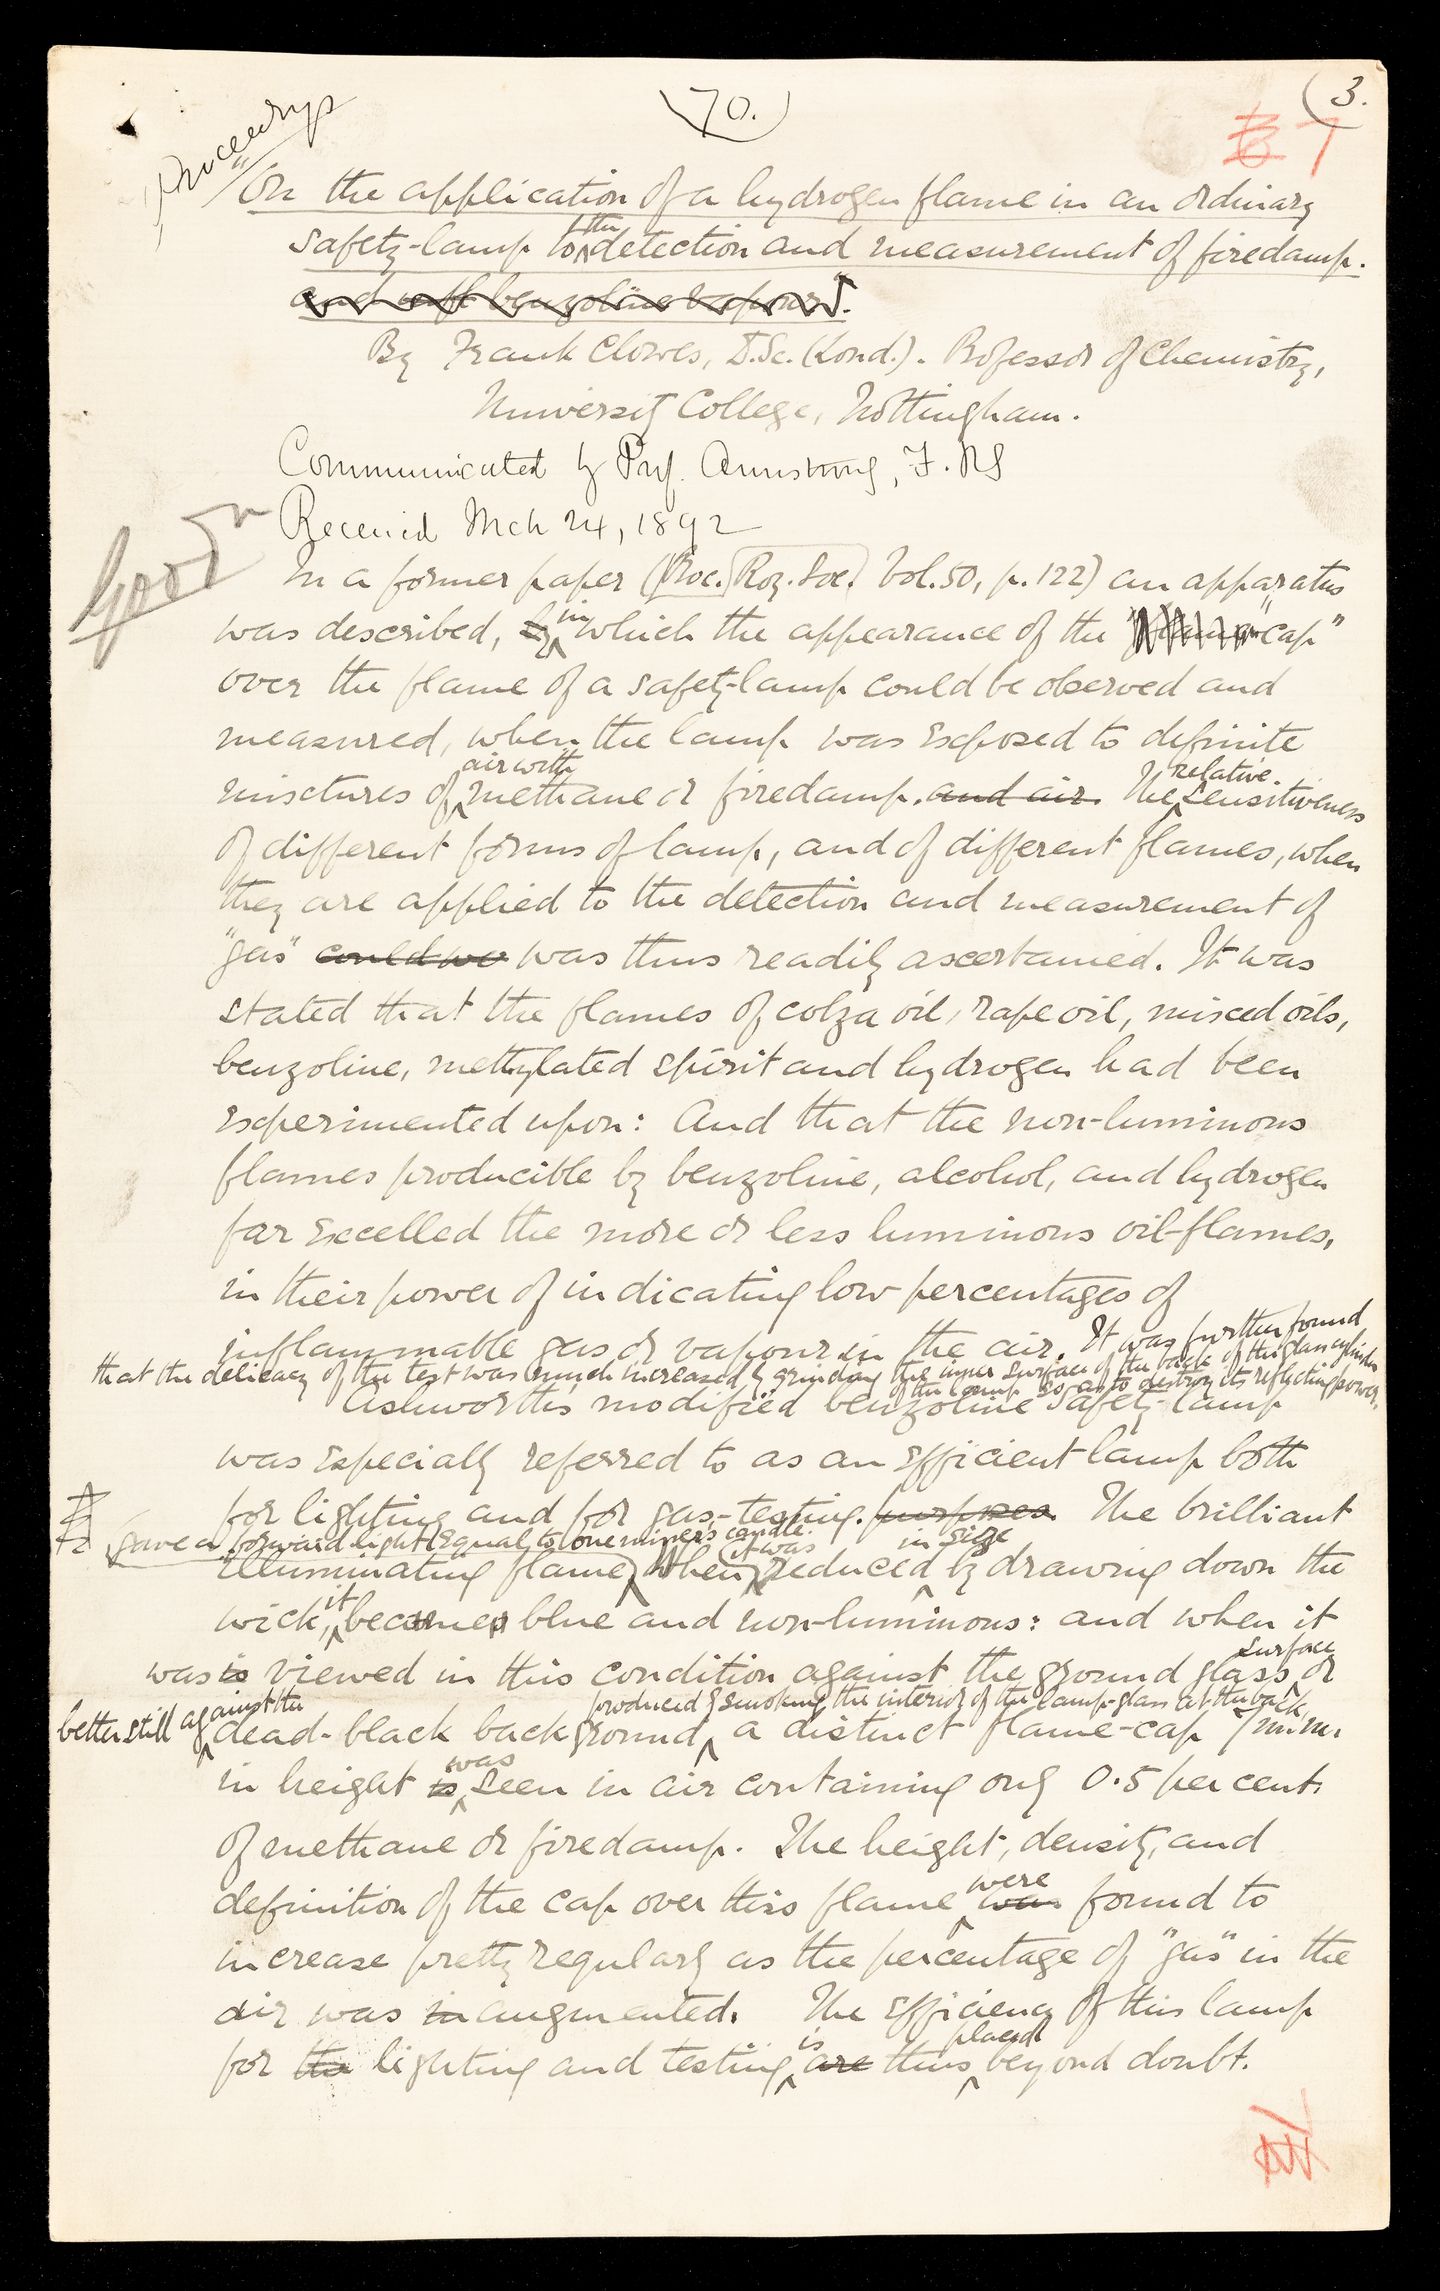 Proceedings
70.
3.
7
"On the application of a hydrogen flame in an ordinary
safety-lamp to the detection and measurement of firedamp.
and benzoline vapour".
By Frank Clowes, D.Sc. (Lond.). Professor of Chemistry,
University College, Nottingham.
Communicated by Prof. Armstrong, F.RS
Received Mch 24, 1892
In a former paper (Proc. Roy. Soc. Vol. 50, p. 122) an apparatus
was described, by in which the appearance of the "cap"
over the flame of a safety-lamp could be observed and
measured, when the lamp was exposed to definite
mixtures of air with methane or firedamp. and air. The relative sensitiveness
of different forms of lamp, and of different flames, when
they are applied to the detection and measurement of
"gas" could we was thus readily ascertained. It was
stated that the flames of colza oil, rape oil, mixed oils,
benzoline, methylated spirit and hydrogen had been
experimented upon: And that the non-luminous
flames producible by benzoline, alcohol, and hydrogen
far excelled the more or less luminous oil-flames,
in their power of indicating low percentages of
inflammable gas or vapour in the air. It was further found
that the delicacy of the test was much increased by grinding the inner surface of the back of the glass cylinder
of the lamp so as to destroy its reflecting power.
Ashworth's modified benzoline safety-lamp
was especially referred to as an efficient lamp both
for lighting and for gas-testing. purposes. The brilliant
gave a forward light equal to one miner's candle. it was in size
illuminating flame, When reduced by drawing down the
wick, it became blue and non-luminous: and when it
was is viewed in this condition against the ground glass surface or
better still against the produced by smoking the interior of the lamp-glass at the back
dead-black background, a distinct flame-cap 7 m.m.
in height is was seen in air containing only 0.5 per cent.
of methane or firedamp. The height, density, and
definition of the cap over this flame were was found to
increase pretty regularly as the percentage of "gas" in the
air was in augmented. The efficiency of this lamp
for the lighting and testing is are thus placed beyond doubt.